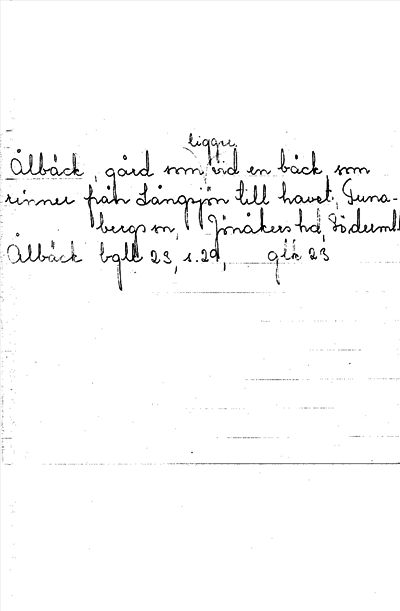 ligger
Ålbäck, gård som vid en bäck, som
rinner från Långsjön till havet, Tuna-
bergs sn, Jönåkers hd, Söderml
Ålbäck bgll 23, s. 29, glk 23